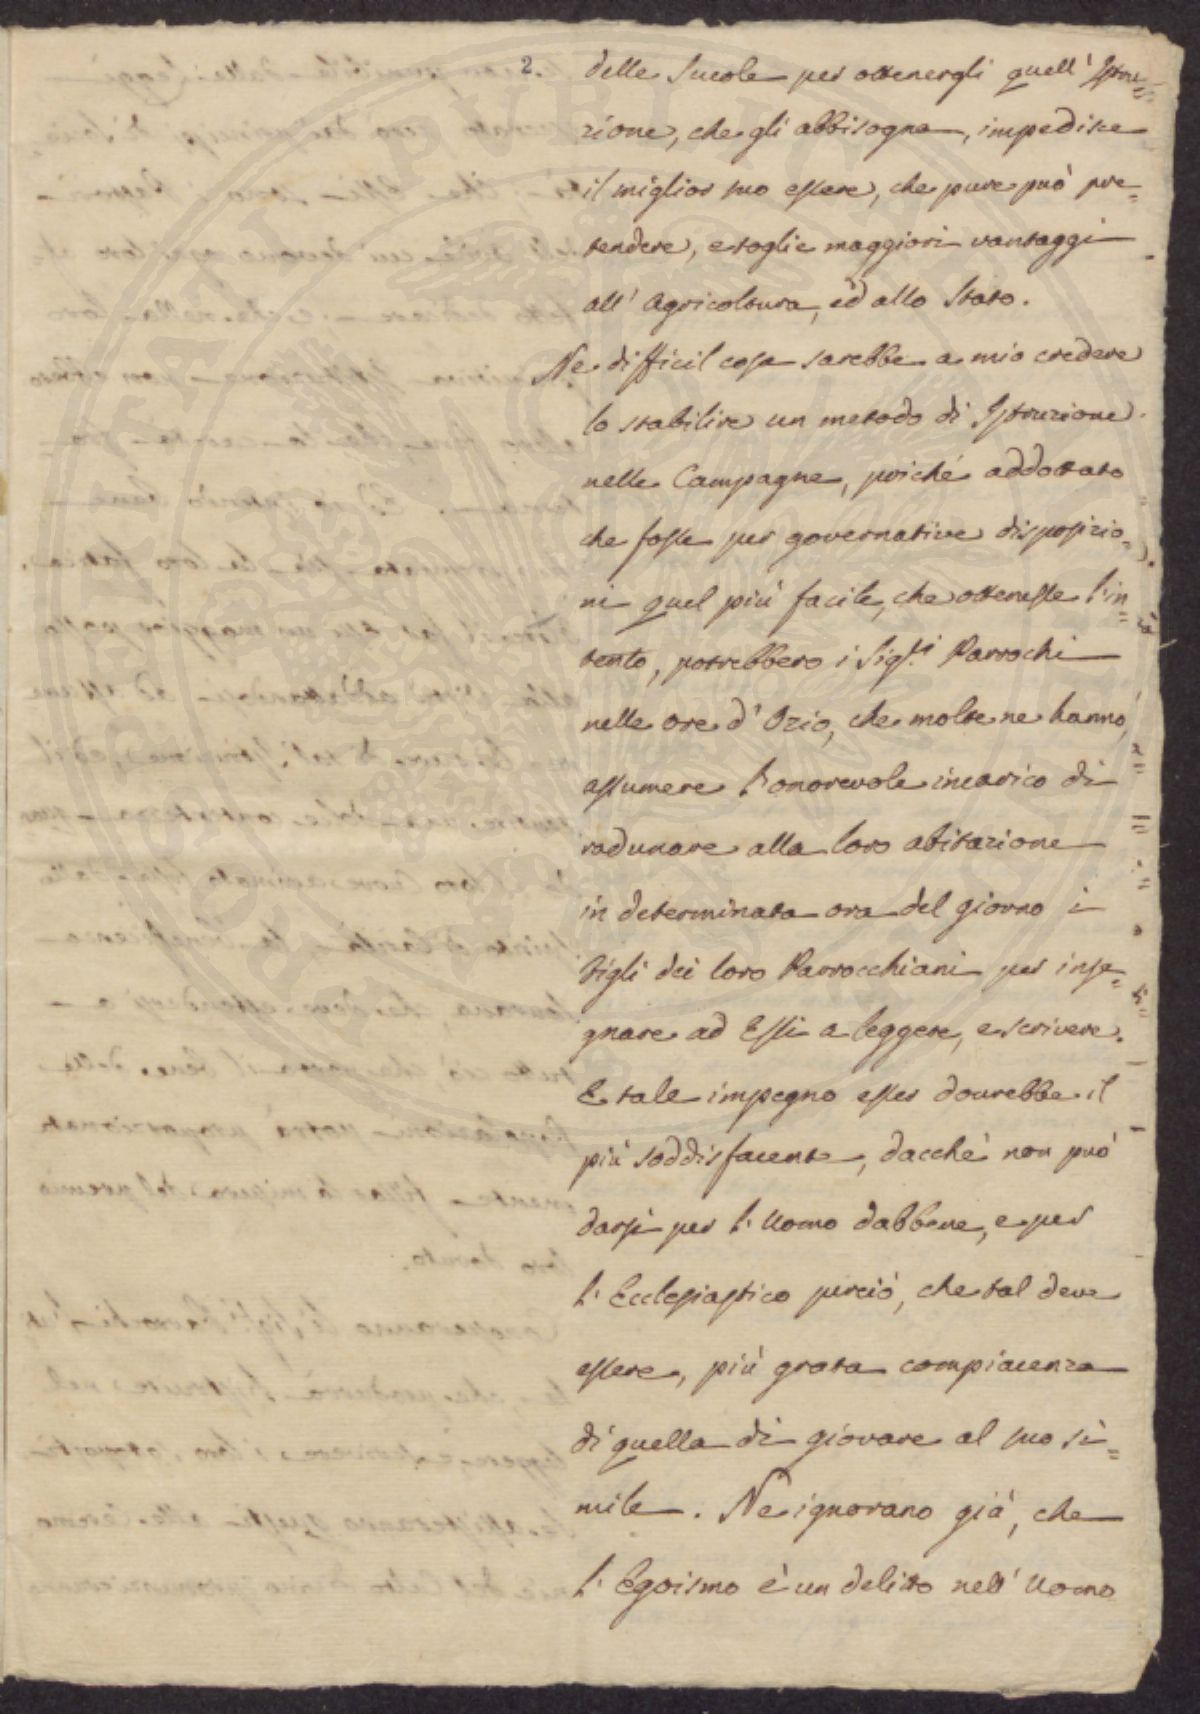 2.
delle Scuole per ottenergli quell' Istru=
zione, che gli abbisogna, impedisce
il miglior suo essere, che pure può pre=
tendere, e toglie maggiori vantaggi
all' Agricoltura, ed allo Stato.
Ne difficil cosa sarebbe a mio credere
lo stabilire un metodo di Istruzione
nelle Campagne, poiché addottato
che fosse per governative disposizio=
ni quel più facile, che ottenesse l'in=
tento, potrebbero i Sigri. Parrochi
nelle ore d' Ozio, che molte ne hanno,
assumere l'onorevole incarico di
radunare alla loro abitazione
in determinata ora del giorno i
Figli dei loro Parrocchiani per inse=
gnare ad Essi a leggere, e scrivere.
E tale impegno esser dovrebbe il
più soddisfacente, dacchè non può
darsi per l' Uomo dabbene, e per
l' Ecclesiastico perciò, che tal deve
essere, più grata compiacenza
di quella di giovare al suo si=
mile. Ne ignorano già, che
l' Egoismo è un delitto nell' Uomo